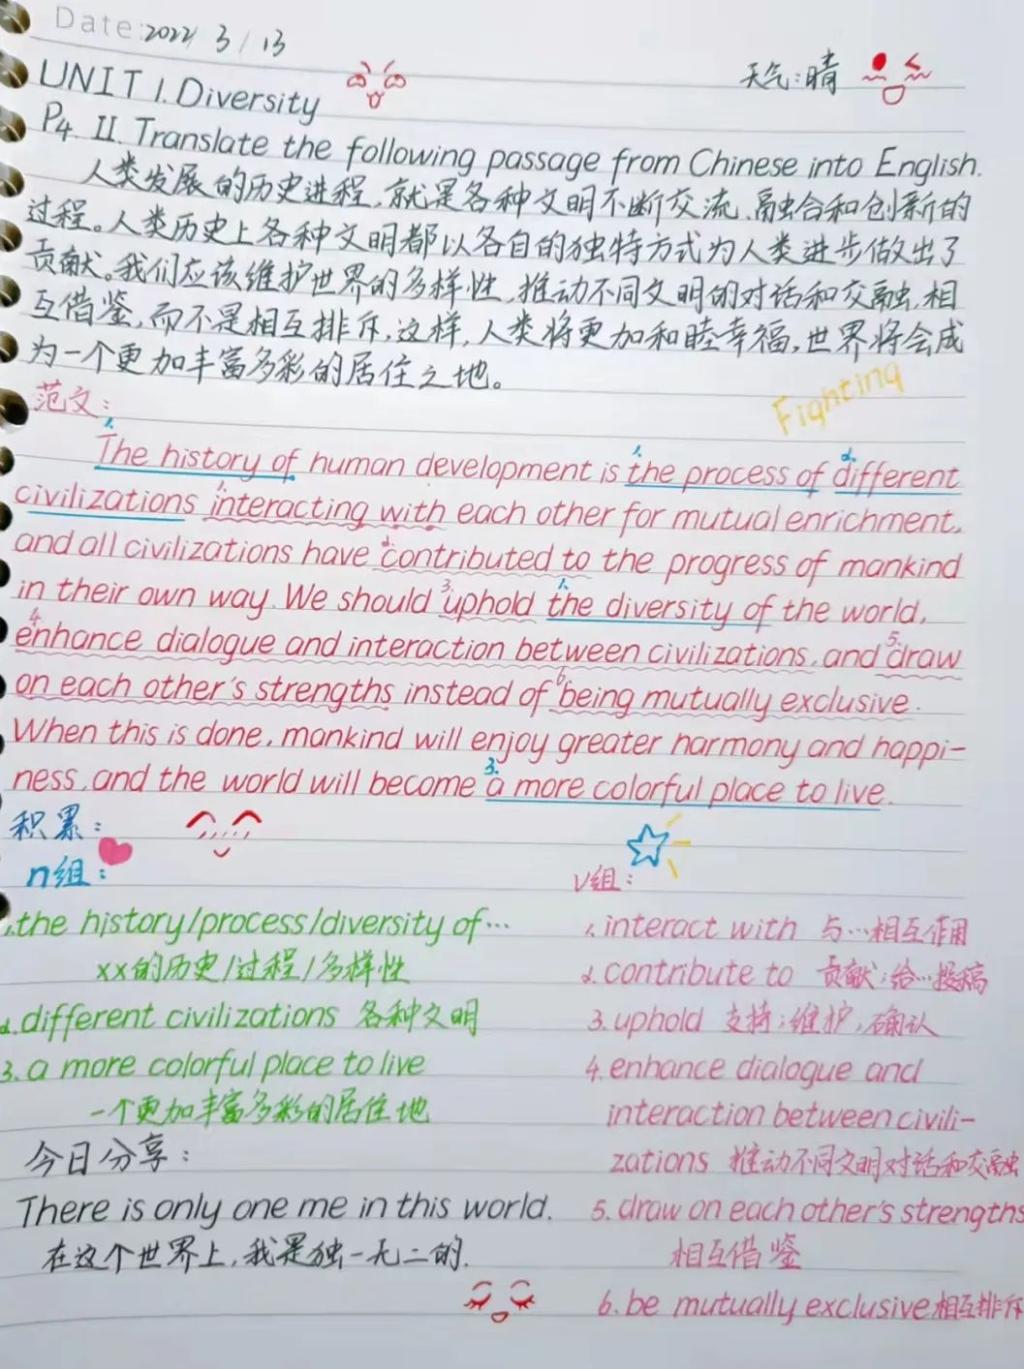 Date: 2022 3/13
天气:晴
UNIT 1. Diversity
P4. II. Translate the following passage from Chinese into English.
人类发展的历史进程,就是各种文明不断交流、融合和创新的
过程。人类历史上各种文明都以各自的独特方式为人类进步做出了
贡献。我们应该维护世界的多样性,推动不同文明的对话和交融,相
互借鉴,而不是相互排斥,这样,人类将更加和睦幸福,世界将会成
为一个更加丰富多彩的居住之地。
Fighting
范文:
1. 1. 2.
The history of human development is the process of different
1.
civilizations interacting with each other for mutual enrichment,
2.
and all civilizations have contributed to the progress of mankind
3. 1.
in their own way. We should uphold the diversity of the world,
4. 5.
enhance dialogue and interaction between civilizations, and draw
6
on each other's strengths instead of being mutually exclusive.
When this is done, mankind will enjoy greater harmony and happi-
3.
ness, and the world will become a more colorful place to live.
积累:
n组:
1. the history/process/diversity of...
xx的历史/过程/多样性
2. different civilizations 各种文明
3. a more colorful place to live
一个更加丰富多彩的居住地
今日分享:
There is only one me in this world.
在这个世界上,我是独一无二的.
v组:
1. interact with 与…相互作用
2. contribute to 贡献;给…投稿
3. uphold 支持;维护,确认
4. enhance dialogue and
interaction between civili-
zations 推动不同文明对话和交融
5. draw on each other's strengths
相互借鉴
6. be mutually exclusive 相互排斥